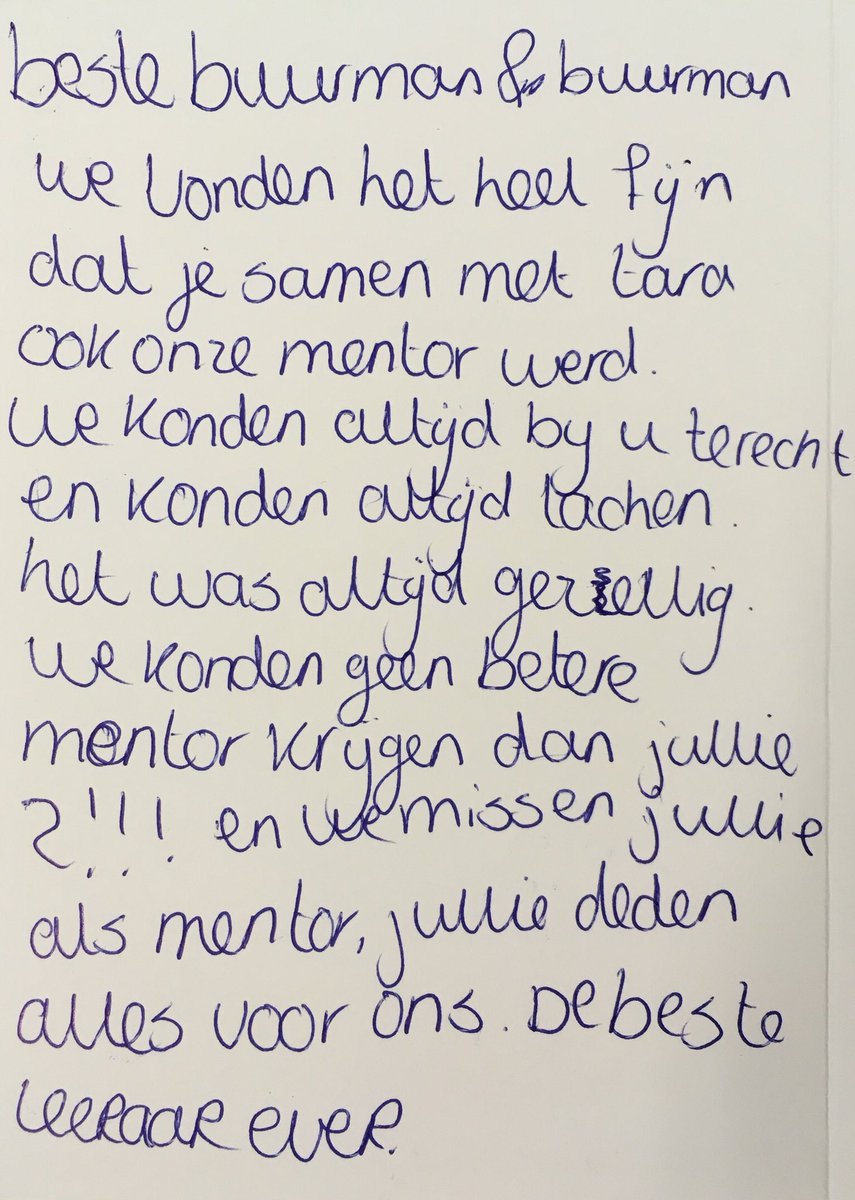 beste buurman & buurman
we vonden het heel fijn
dat je samen met tara
ook onze mentor werd.
we konden altijd by u terecht
en konden altijd lachen.
het was altijd gezellig.
we konden geen betere
mentor krijgen dan jullie
2!!! en we missen jullie
als mentor, jullie deden
alles voor ons. De beste
leeraar ever.